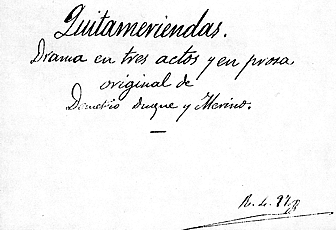 Quitameriendas.
Drama en tres actos y en prosa
original de
Demetrio Duque y Merino.